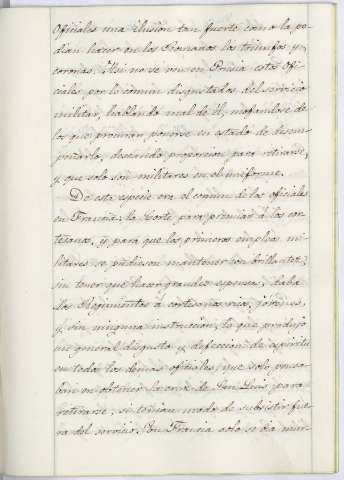 Oficiales una ilusion tan fuerte como la po-
dian hacer en los Romanos los triunfos y
coronas. Asi no se ven en Prusia estos Ofi-
ciales por lo comun disgustados del servicio
militar, hablando mal de él, mofandose de
los que procuran ponerse en estado de desem-
peñarlo, deseando proporcion para retirarse,
y que solo son militares en el uniforme.
De esta especie era el comun de los oficiales
en Francia: la Corte, para premiar á los cor-
tesanos, y para que los primeros empleos mi-
litares se pudiesen mantener con brillantez,
sin tener que hacer grandes expensas, daba
los Regimientos á cortesanos ricos, jóvenes,
y sin ninguna instruccion, lo que produjo
un general disgusto y defeccion de espíritu
en todos los demas oficiales, que solo pensa-
ban en obtener la cruz de San Luis, para
retirarse, si tenian modo de subsistir fue-
ra del servicio. En Francia solo se ha mir-